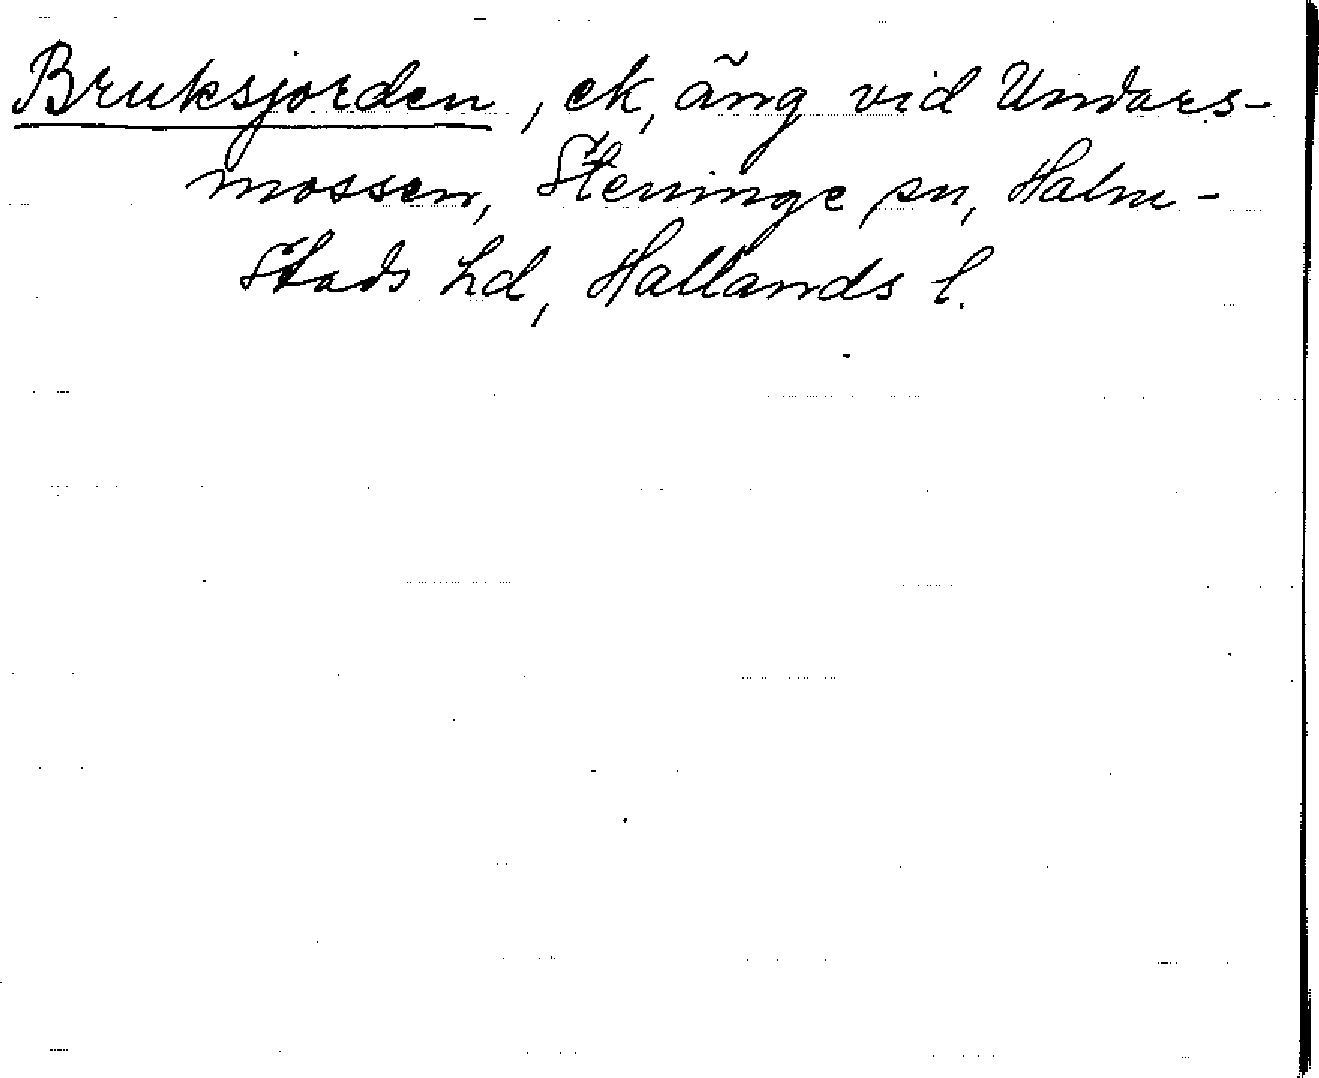 Bruksjorden, ek, äng vid Undars-
mossen, Steninge sn, Halm-
stads hd, Hallands l.